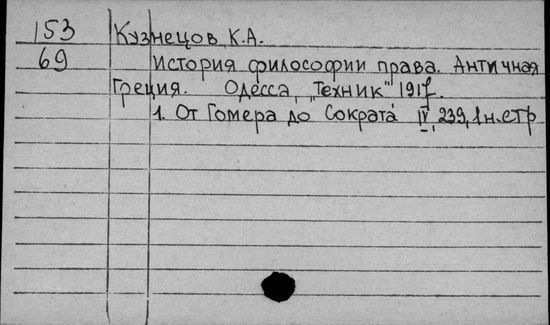 153 Кузнецов К.А.
69 История философии права. Античная
Греция. Одесса, "Техник" 1917.
1. От Гомера до Сократа IV, 239, 1 н. стр